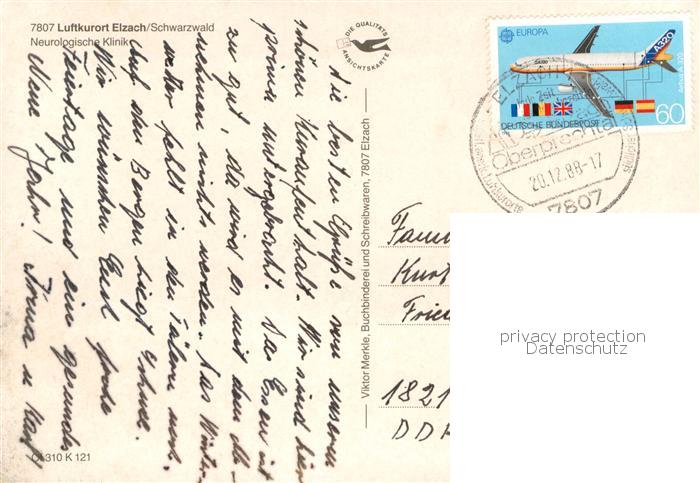 7807 Luftkurort Elzach/Schwarzwald
Neurologische Klinik
DIE QUALITÄTS
ANSICHTSKARTE
Die besten Grüße von unserem
schönen Kuraufenthalt. Wir sind hier
prima untergebracht. Das Essen ist
zu gut da wird es mit dem Ab-
nehmen nichts werden. Das Winter-
wetter fehlt in den Tälern noch.
Auf den Bergen liegt Schnee.
Wir wünschen Euch frohe
Feiertage und ein gesundes
Neue Jahr! Irma u Karl
Viktor Merkle, Buchbinderei und Schreibwaren, 7807 Elzach
Ol 310 K 121
EUROPA
A320
Airbus A 320
DEUTSCHE BUNDESPOST
60
ELZACH
Oberprechtal
20.12.88-17
7807
Fam
Kurt
Frie
1821
DDR
privacy protection
Datenschutz